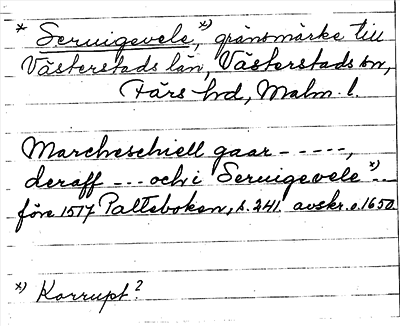 * Seruigevele,ˣ⁾ gränsmärke till
Västerstads län, Västerstads sn,
Färs hd, Malm. l.
Marcheschiell gaar - - - - -,
deraff - - - och i Seruigeveleˣ⁾ - -
före 1517 Palteboken, s. 241. avskr. c. 1650
ˣ⁾ Korrupt?